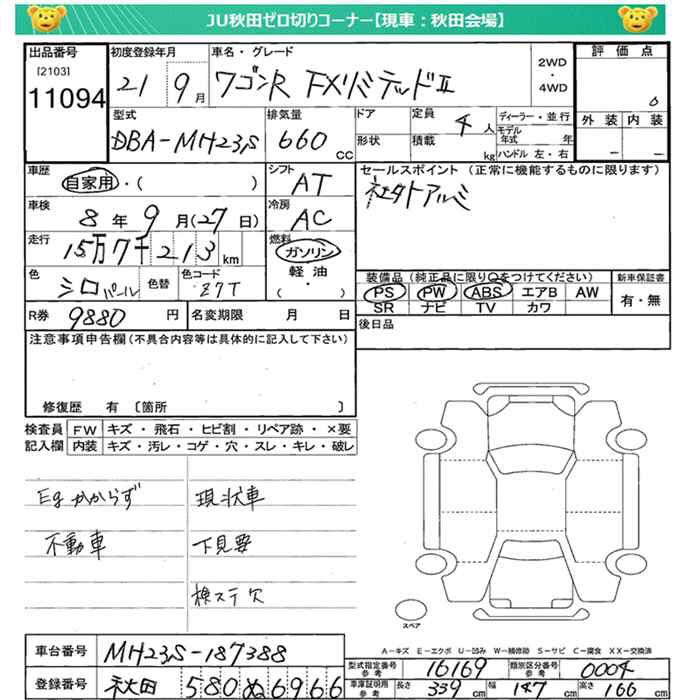 JU秋田ゼロ切りコーナー【現車：秋田会場】
出品番号 初度登録年月 車名・グレード 2WD・4WD 評価点
[2103] 11094 21 9月 ワゴンR FXリミテッドⅡ 0
型式 排気量 ドア 定員 4人 ディーラー・並行 外装 内装
DBA-MH23S 660cc 形状 積載 kg モデル年式 年 ハンドル 左・右 － －
車歴 自家用・( ) シフト AT セールスポイント (正常に機能するものに限ります)
車検 8年9月(27日) 冷房 AC 社外アルミ
走行 15万7千213km 燃料 ガソリン 軽油・( )
色 シロパール 色替 色コード Z7T 装備品 (純正品に限り○をつけてください) 新車保証書
PS PW ABS エアB AW 有・無
SR ナビ TV カワ
R券 9880円 名変期限 月 日 後日品
注意事項申告欄(不具合内容等は具体的に記入して下さい)
修復歴 有 〔箇所 〕
検査員 FW キズ・飛石・ヒビ割・リペア跡・×要
記入欄 内装 キズ・汚レ・コゲ・穴・スレ・キレ・破レ
Egかからず 現状車
不動車 下見要
検ステ欠
スペア
A－キズ E－エクボ U－凹み W－補修跡 S－サビ C－腐食 XX－交換済
車台番号 MH23S-187388
登録番号 秋田 580 ぬ 6966
型式指定番号 参考 16169 類別区分番号 参考 0004
車庫証明用 参考 長さ 339 幅 147 高さ 166 cm